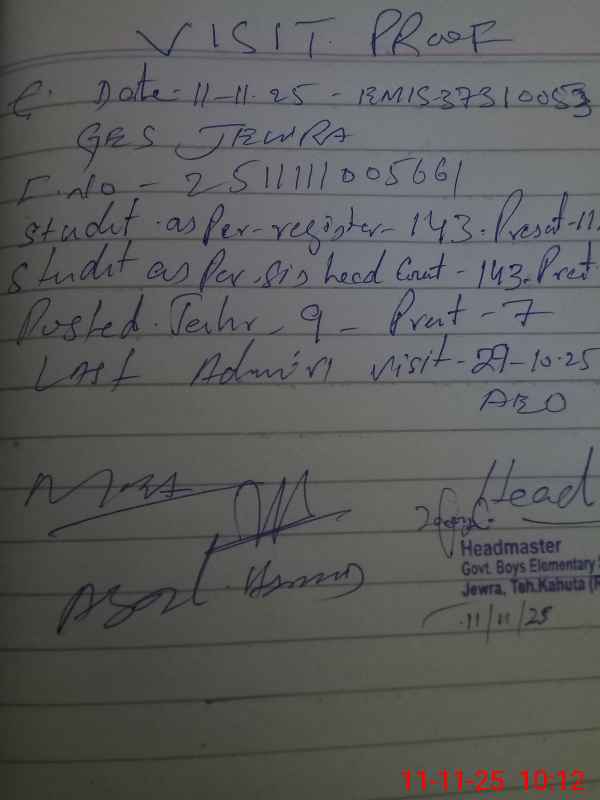 VISIT PROOF
Date-11-11-25 - EMIS-37310053
GES JEWRA
F.No - 25111111005661
Studet as Per-register-143-Present-11
Studet as Per sis head Count - 143-Pret
Posted Teahr - 9 - Pret - 7
LAST Admin visit-27-10-25
AEO
Head
Headmaster
Govt. Boys Elementary S
Jewra, Teh.Kahuta (R
11/11/25
11-11-25 10:12